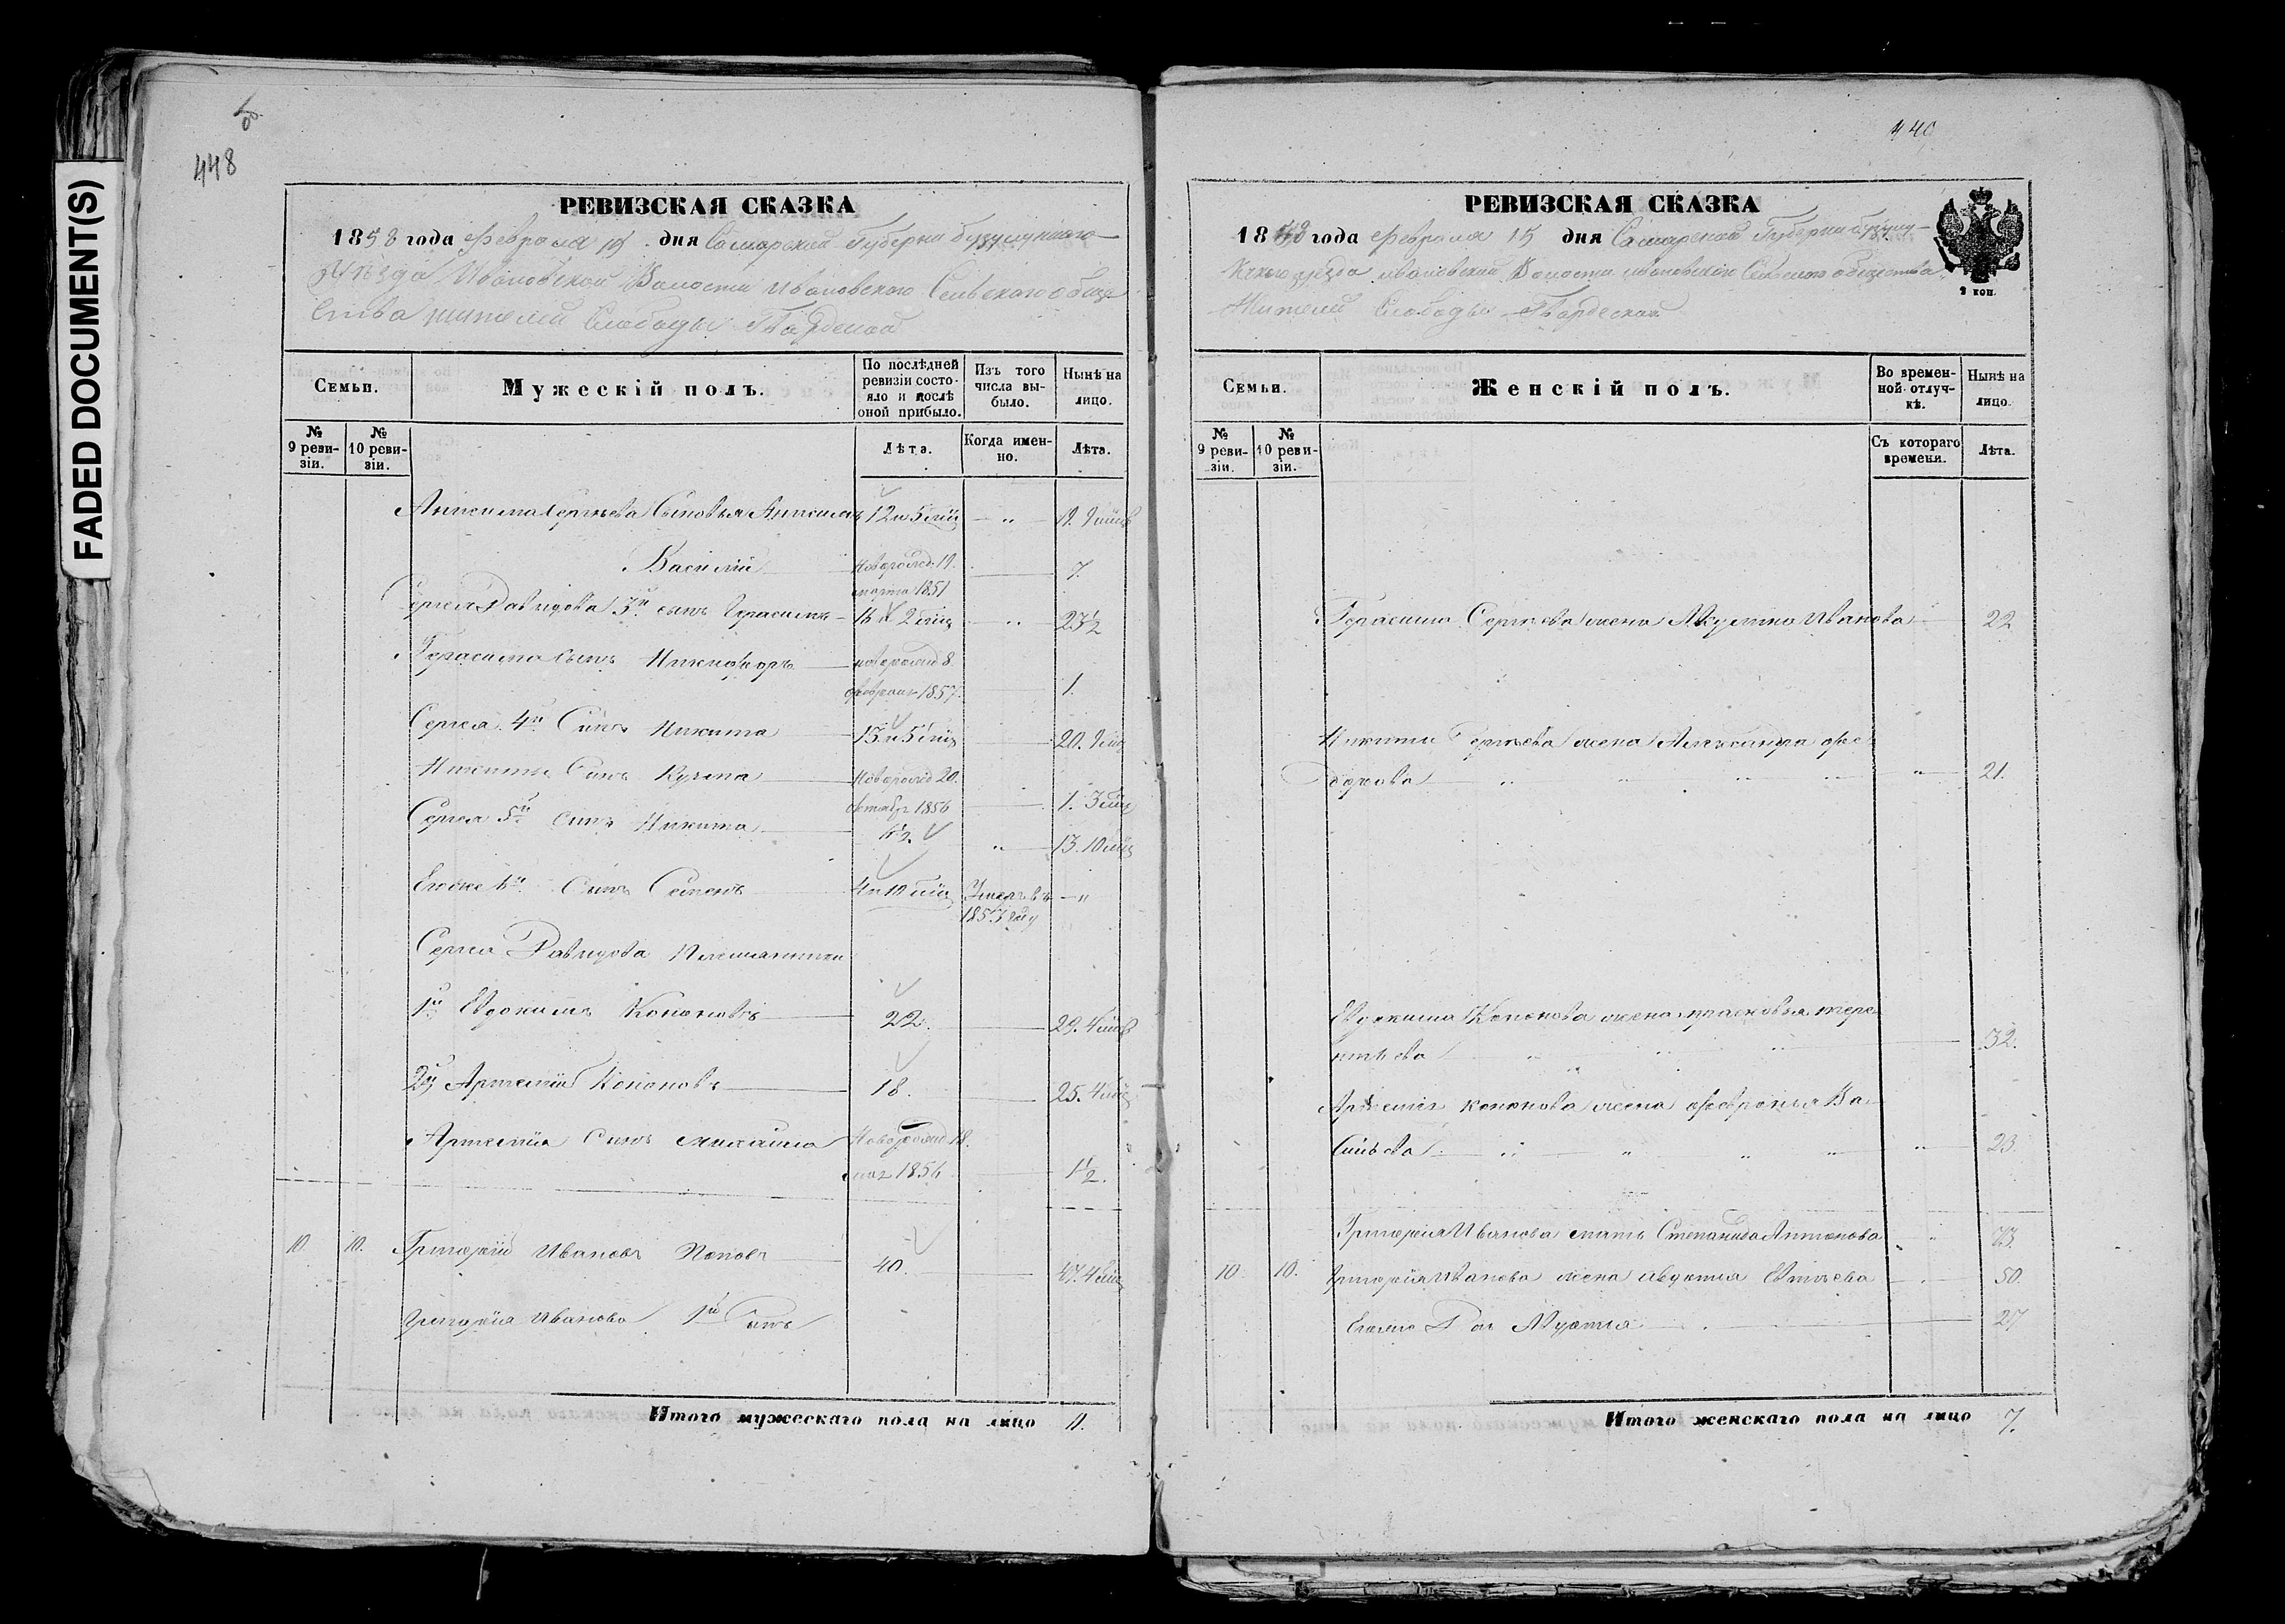 FADED DOCUMENT(S)
448
РЕВИЗСКАЯ СКАЗКА
1858 года Февраля 15 дня Самарской Губернии бузулукскаго
Уѣзда Ивановской Волости Ивановскаго Сельскаго обще
ства жителей Слободы Гвардеской
Семьи.
Мужескій полъ.
По послѣдней ревизіи состояло и послѣ оной прибыло.
Изъ того числа выбыло.
Нынѣ на лицо.
№ 9 ревизіи.
№ 10 ревизіи.
Лѣта.
Когда именно.
Лѣта.
Анисима Сергѣева Сыновья Анисимъ 12 и 5 мѣц " 19. 9 мѣц
Василій новорожд. 19. марта 1851 7.
Сергея Давидова 3й сынъ Герасимъ 16 и 2 мѣц " 23½
Герасима сынъ Никифоръ новорожд 8. февраля 1857. 1.
Сергея 4й Сынъ Никита 13 и 5 мѣц 20. 9 мѣц
Никиты Сынъ Кузма новорожд 20. октября 1856 1. 3 мѣц
Сергея 5й Сынъ Никита 6½. " 13. 10 мѣц
Егоже 6й Сынъ Семенъ 4 и 10 мѣц Умеръ въ 1857 году "
Сергея Давидова Племянники
1й Евдокимъ Кононовъ 22. 29. 4 мѣц
2й Артемій Кононовъ 18. 25. 4 мѣц
Артемія Сынъ Михаила Новорожд 18. мая 1856 1½.
10. 10. Григорій Ивановъ Поповъ 40. 47. 4 мѣц
Григорія Иванова 1й Сынъ
Итого мужескаго пола на лицо 11.
449
РЕВИЗСКАЯ СКАЗКА
1858 года Февраля 15 дня Самарской Губернии бузулу-
кскаго уѣзда ивановской Волости ивановской Сельскаго общества
Жителей Слободы Гвардеской
2 коп.
Семьи.
Женскій полъ.
Во временной отлучкѣ.
Нынѣ на лицо.
№ 9 ревизіи.
№ 10 ревизіи.
Съ котораго времени.
Лѣта.
Герасима Сергѣева жена Акулина Иванова 22
Никиты Сергѣева жена Александра фе
дорова " " " " " 21.
Евдокима Кононова жена прасковья тере
нтьева " " " 32.
Артемія кононова жена феврония Ва
сильева " " " " " 23.
Григорія Иванова мать Степанида Антонова " 73.
10 10. Григорія Иванова жена авдотия Евтиева " 50.
Итого женскаго пола на лицо 7.